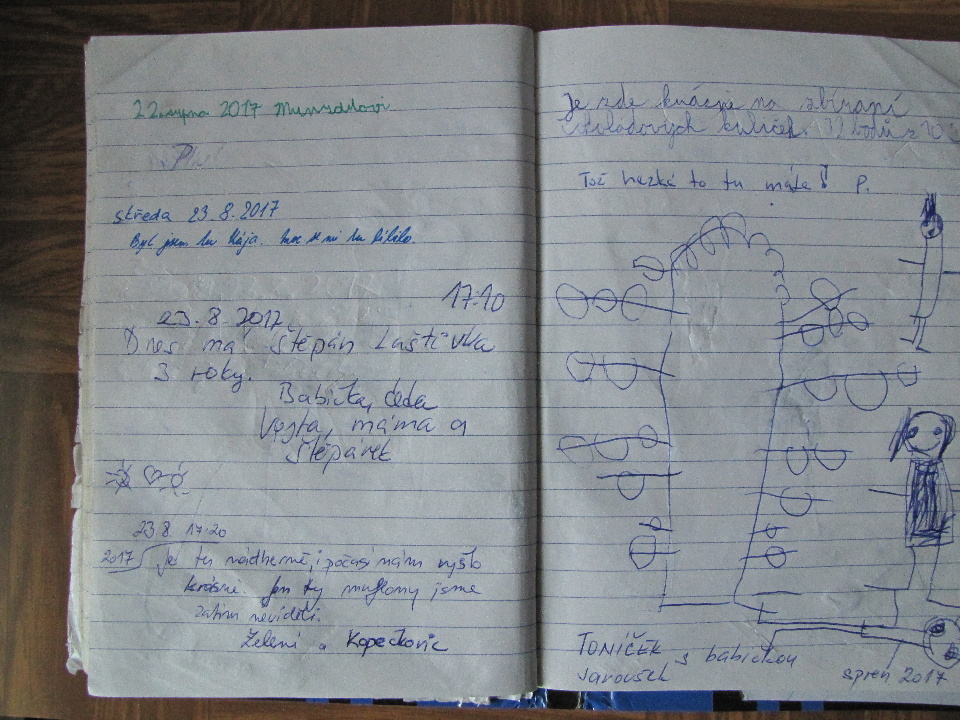 22. srpna 2017
středa 23.8.2017
Byl jsem tu Kája. Moc se mi tu líbilo.
17:10
23.8.2017
Dnes má Štěpán Laštůvka
3 roky.
Babička, děda
Vojta, máma a
Štěpánek
23.8. 17:20
2017 Je tu nádherně, i počasí nám vyšlo
krásně. Jen ty muflony jsme
zatím neviděli.
Zelení a
Je zde krásně na sbírání
kuliček.
Tož hezké to tu máte! P.
TONÍČEK s babičkou
Jaroušek
srpen 2017